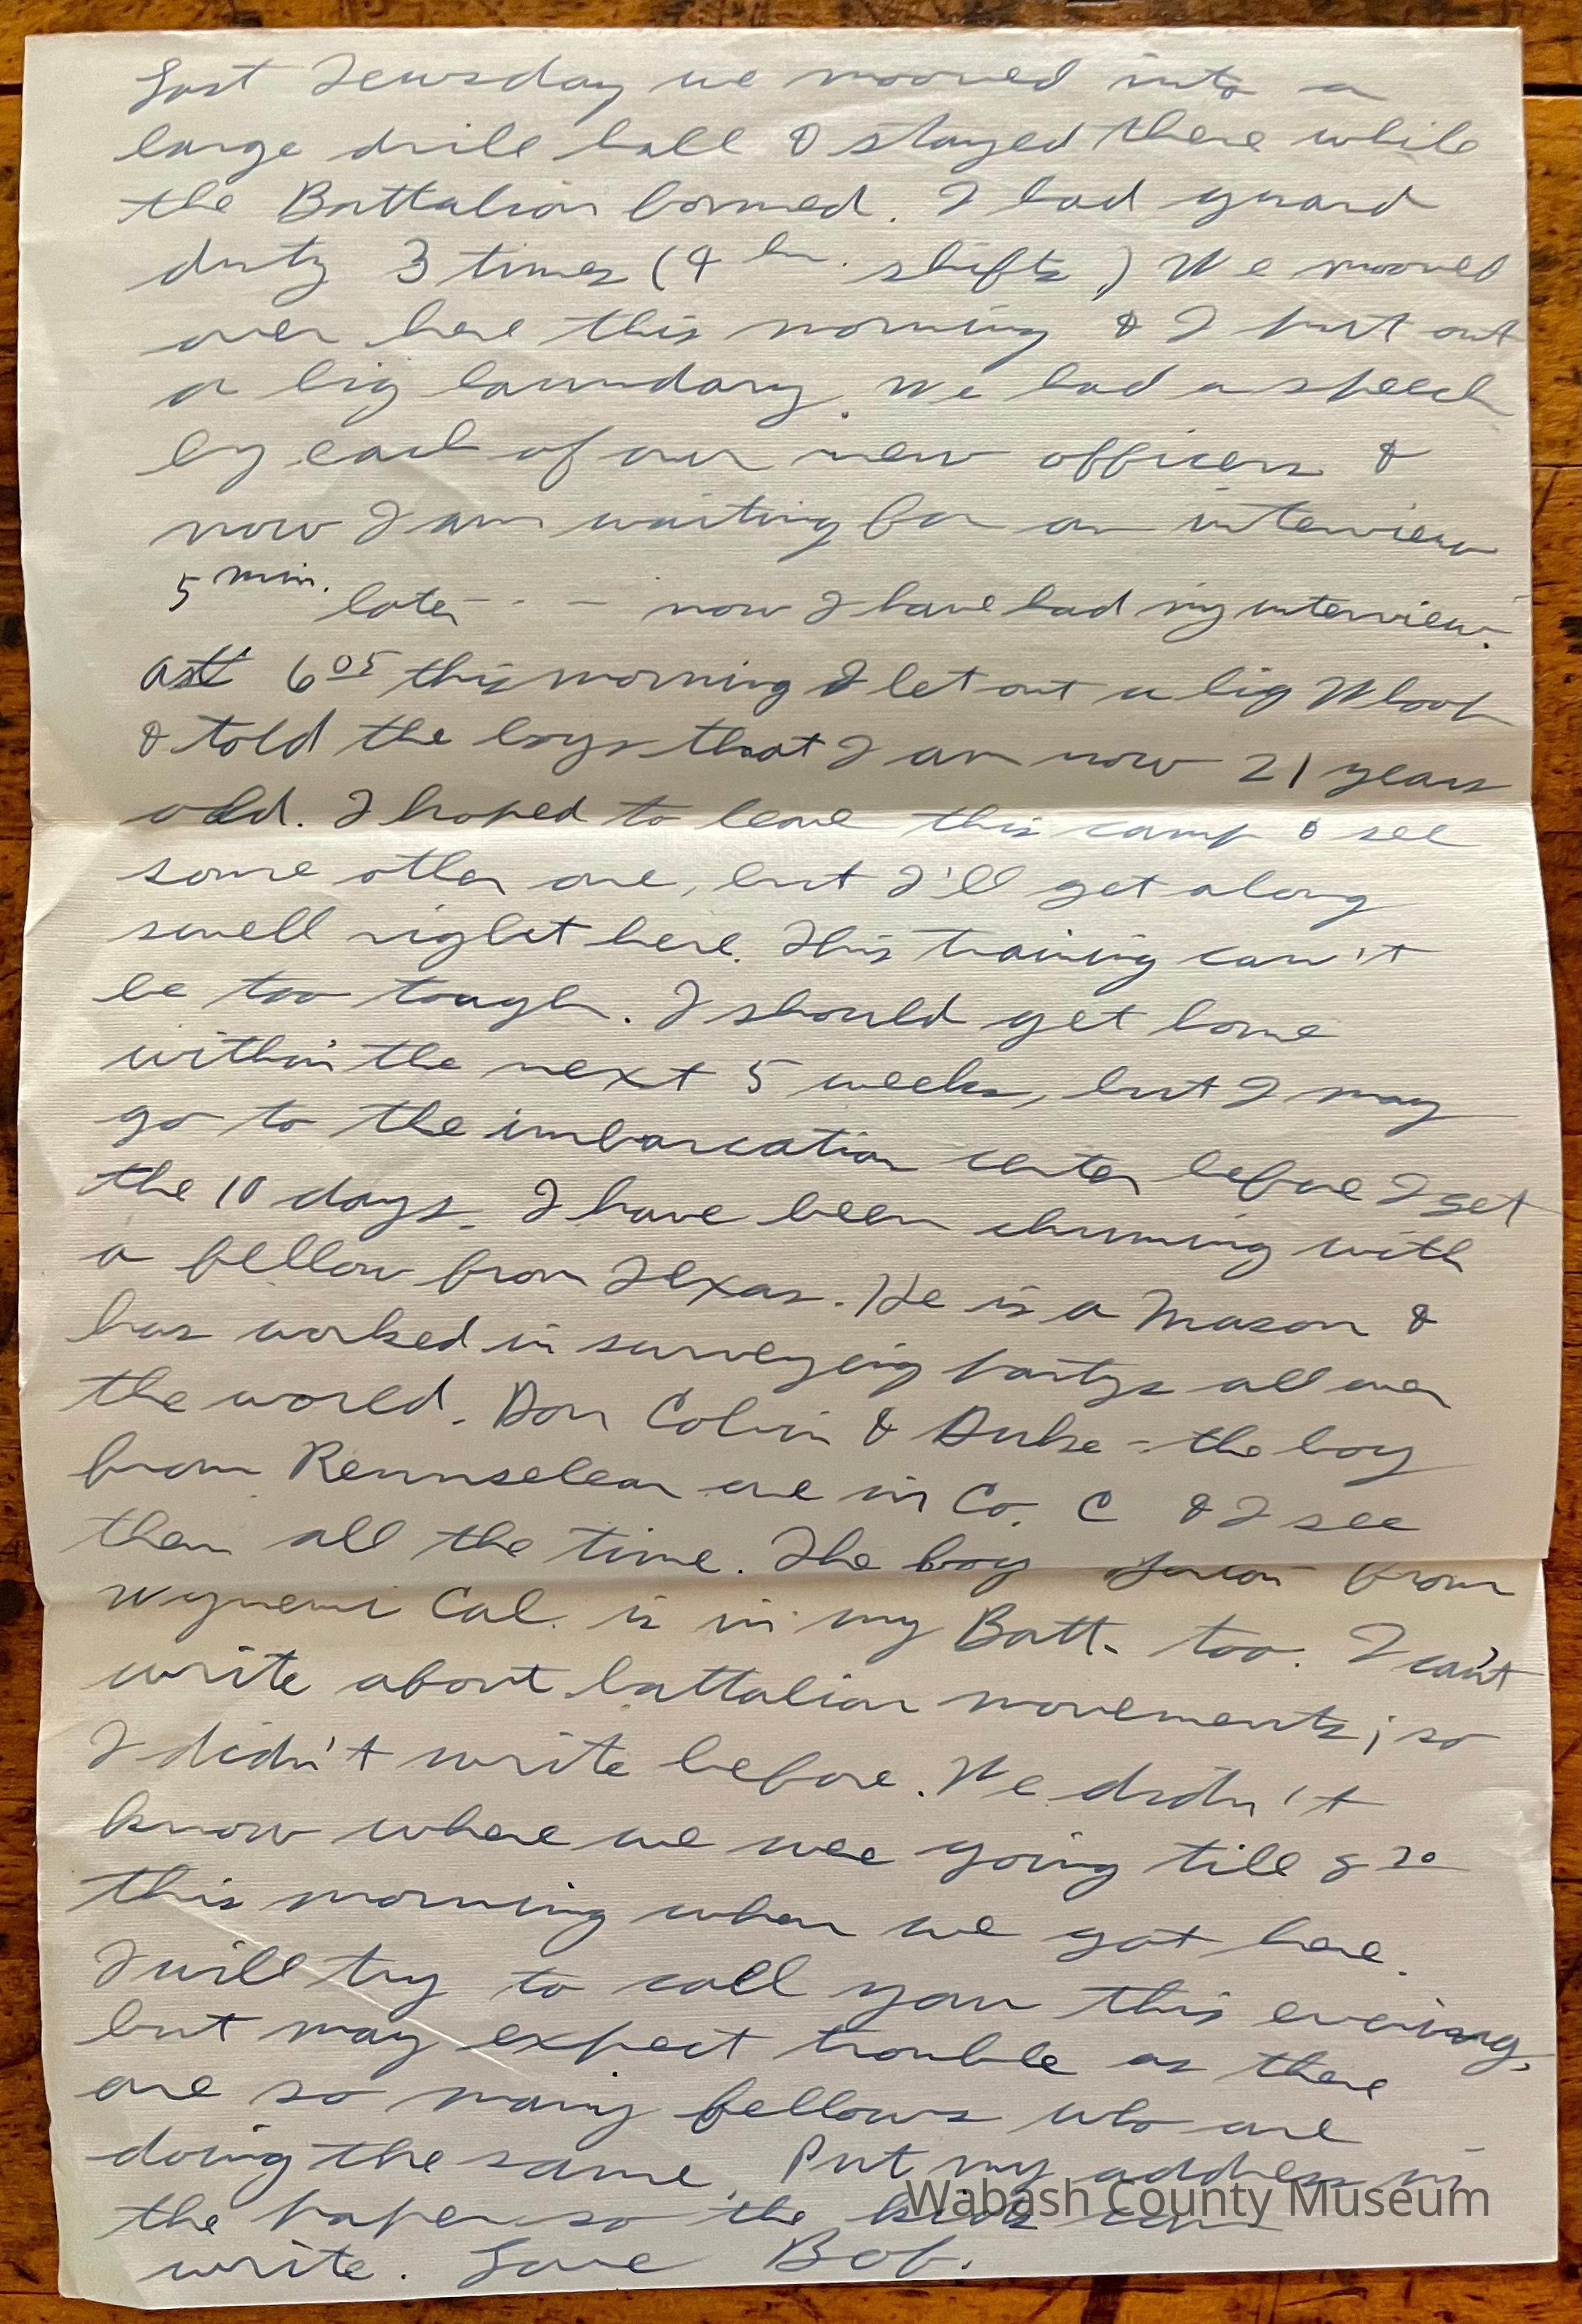 Last Teusday we mooved into a
large drill hall & stayed there while
the Battalion formed. I had guard
duty 3 times (4 hr. shifts) We mooved
over here this morning & I put out
a big laundary. We had a speech
by each of our new officers &
now I am waiting for an interview
5 min. later - - - now I have had my interview.
At 6 05 this morning I let out a big Whoop
& told the boys that I am now 21 years
old. I hoped to leave this camp & see
some other one, but I'll get along
swell right here. This training can't
be too tough. I should get home
within the next 5 weeks, but I may
go to the imbarcation center before I get
the 10 days. I have been chuming with
a fellow from Texas. He is a Mason &
has worked in surveying partys all over
the world. Don Colvin & Duke - the boy
from Rennselear are in Co. C & I see
them all the time. The boy from
Wynemi Cal. is in my Batt. too. I can't
write about battalion movements; so
I didn't write before. We didn't
know where we wee going till 8 20
this morning when we got here.
I will try to call you this evening,
but may expect trouble as there
are so many fellows who are
doing the same. Put my address in
the paper so the kids can
write. Love Bob.
Wabash County Museum